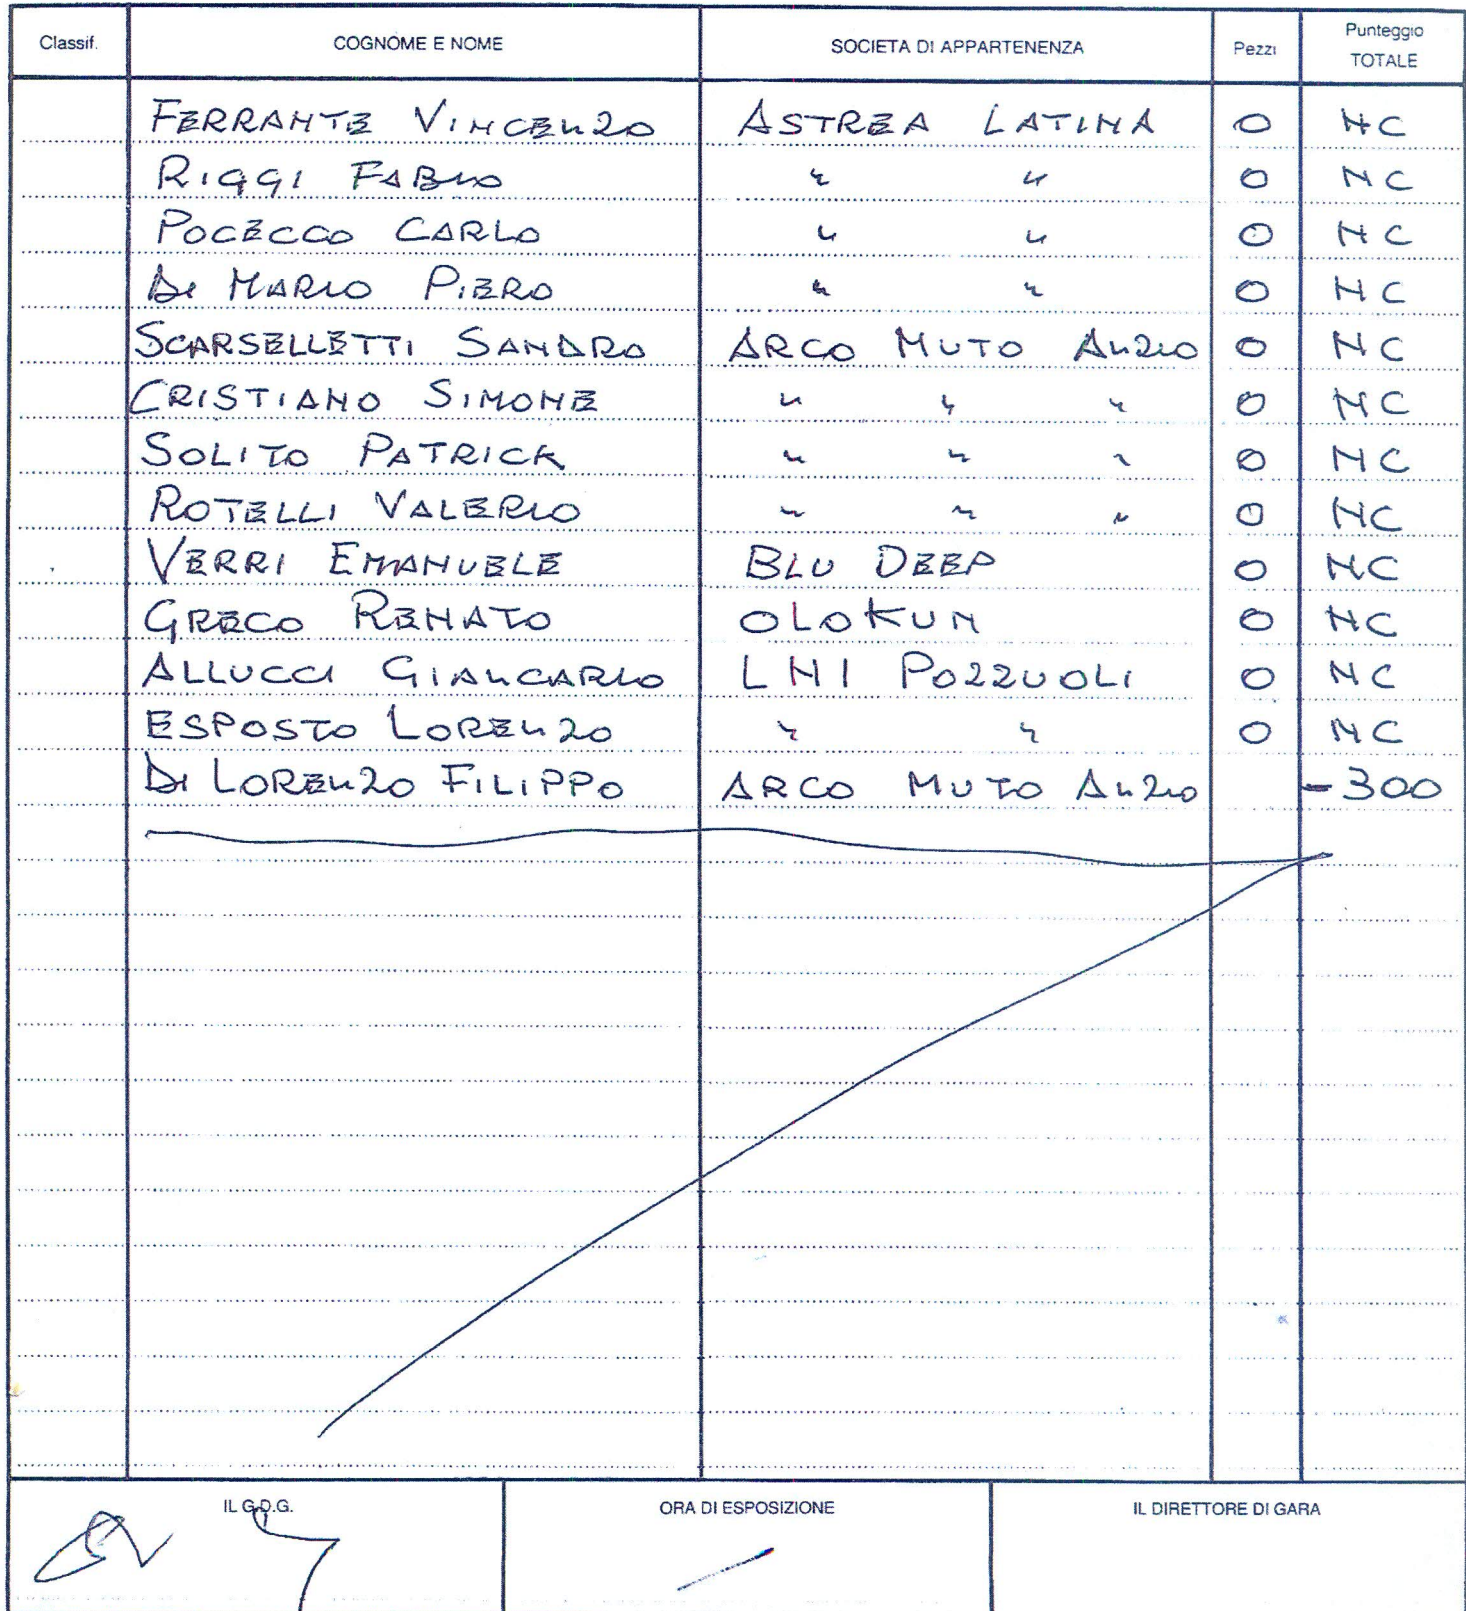 Classif. COGNOME E NOME SOCIETA DI APPARTENENZA Pezzi Punteggio TOTALE
FERRANTE VINCENZO ASTREA LATINA 0 NC
RIGGI FABIO " " 0 NC
POCECCO CARLO " " 0 NC
DI MARIO PIERO " " 0 NC
SCARSELLETTI SANDRO ARCO MUTO ANZIO 0 NC
CRISTIANO SIMONE " " " 0 NC
SOLITO PATRICK " " " 0 NC
ROTELLI VALERIO " " " 0 NC
VERRI EMANUELE BLU DEEP 0 NC
GRECO RENATO OLOKUN 0 NC
ALLUCCI GIANCARLO LNI POZZUOLI 0 NC
ESPOSTO LORENZO " " 0 NC
DI LORENZO FILIPPO ARCO MUTO ANZIO -300
IL G.D.G. ORA DI ESPOSIZIONE IL DIRETTORE DI GARA